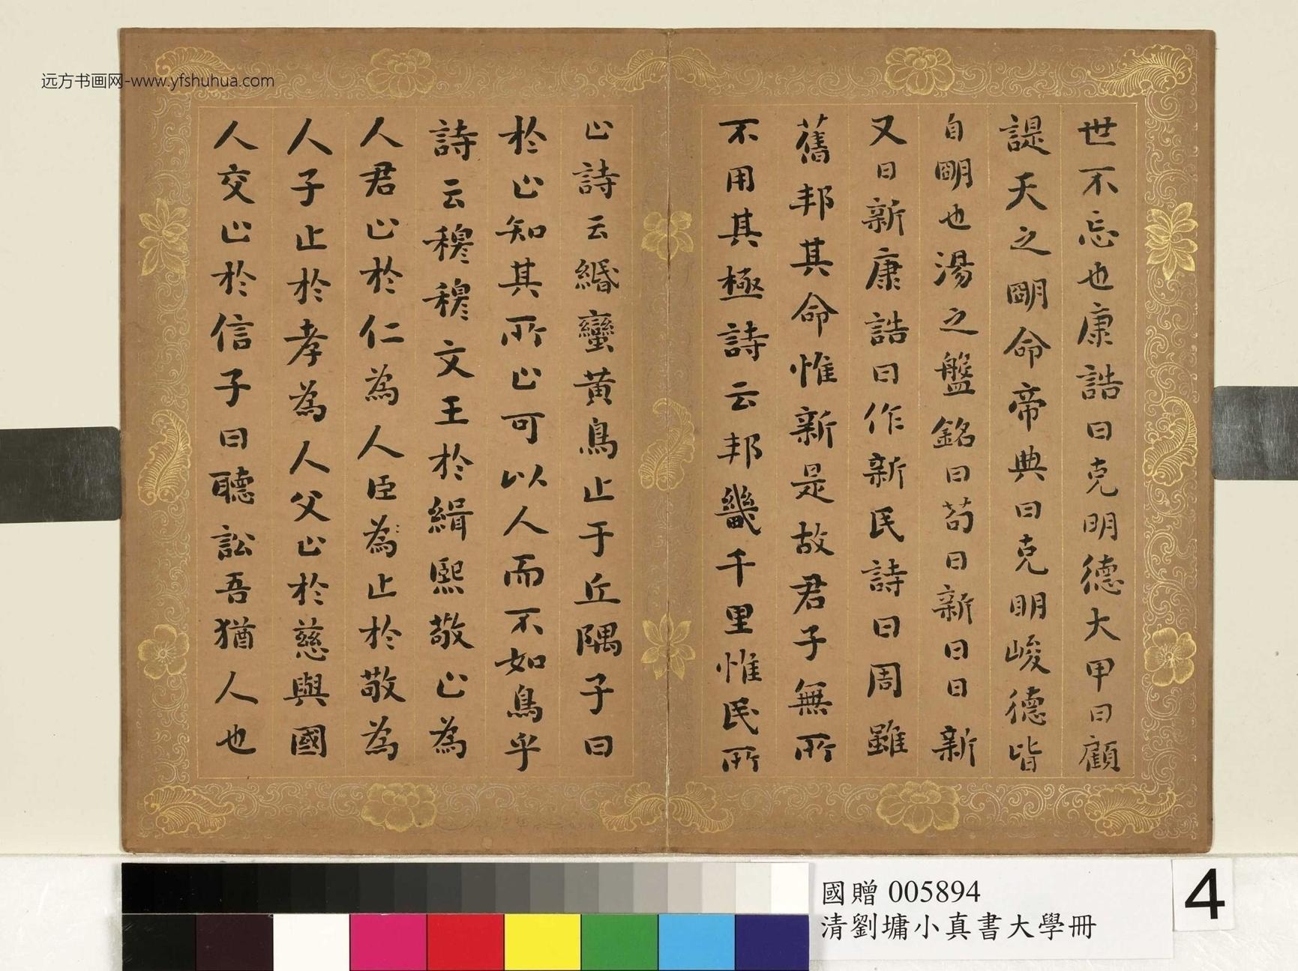 远方书画网-www.yfshuhua.com
世不忘也康誥曰克明德大甲曰顧
諟天之朙命帝典曰克明峻德皆
自朙也湯之盤銘曰苟日新日日新
又日新康誥曰作新民詩曰周雖
舊邦其命惟新是故君子無所
不用其極詩云邦畿千里惟民所
止詩云緡蠻黃鳥止于丘隅子曰
於止知其所止可以人而不如鳥乎
詩云穆穆文王於緝熙敬止為
人君止於仁為人臣為止於敬為
人子止於孝為人父止於慈與國
人交止於信子曰聽訟吾猶人也
國贈 005894
清劉墉小真書大學冊
4